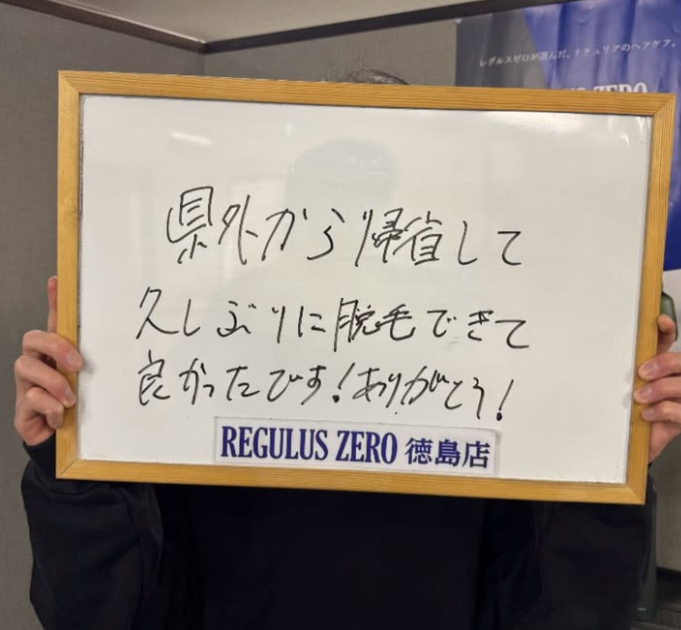 レグルスゼロが選んだ、ナチュリアのヘアケア。
ZERO
県外から帰省して
久しぶりに脱毛できて
良かったです!ありがとう!
REGULUS ZERO 徳島店